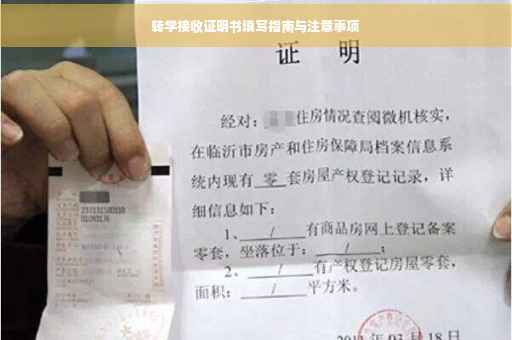 转学接收证明书填写指南与注意事项
证 明
经对：住房情况查阅微机核实，
在临沂市房产和住房保障局档案信息系
统内现有 零 套房屋产权登记记录，详
细信息如下：
1、 / 有商品房网上登记备案
零套，坐落位于： / ；
2、 / 有产权登记房屋零套，
面积： / 平方米。
2011 年 03 月 18 日